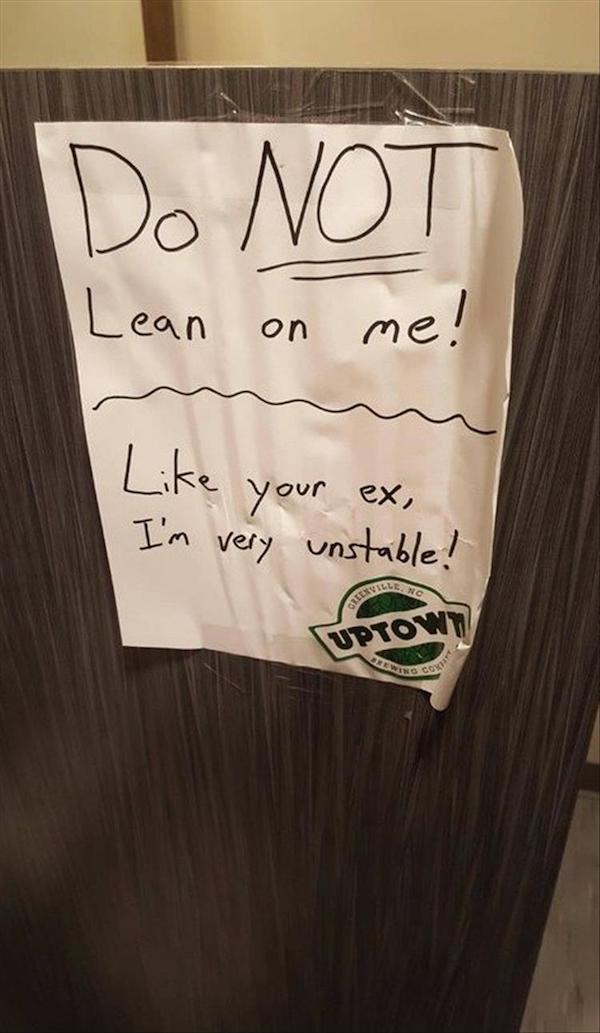 Do NOT
Lean on me!
Like your ex,
I'm very unstable!
GREENVILLE, NC
UPTOWN
BREWING COMPANY